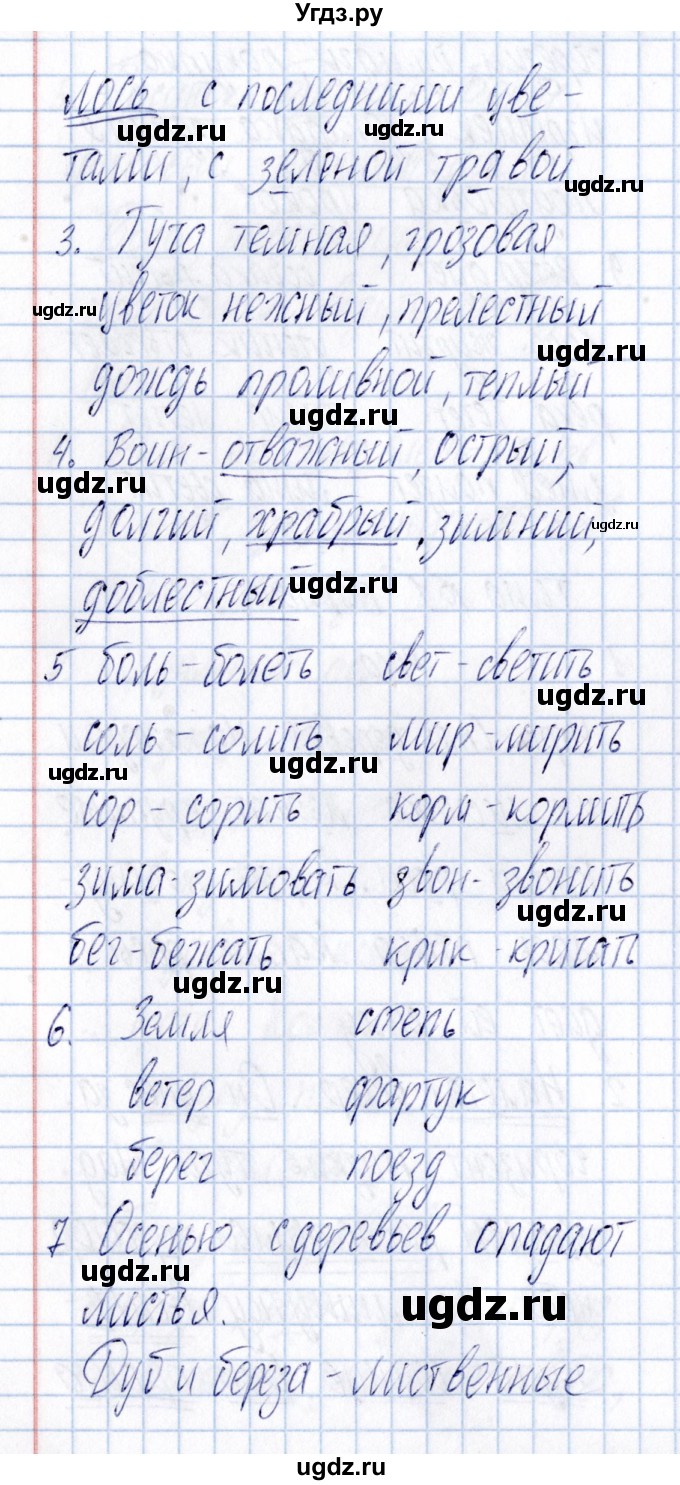 Угдз.ру
лось с последними цве-
ugdz.ru ugdz.ru
тами, с зеленой травой
ugdz.ru
3. Туча темная, грозовая
ugdz.ru цветок нежный, прелестный
ugdz.ru
дождь проливной, теплый
ugdz.ru
4. Воин - отважный, острый,
ugdz.ru
долгий, храбрый, зимний,
ugdz.ru
доблестный
ugdz.ru
5 боль - болеть свет - светить
ugdz.ru
соль - солить мир - мирить
ugdz.ru ugdz.ru
сор - сорить корм - кормить
зима - зимовать звон - звонить
ugdz.ru
бег - бежать крик - кричать
ugdz.ru
6. Земля степь
ветер фартук
берег поезд
7 Осенью с деревьев опадают
ugdz.ru
листья.
ugdz.ru
Дуб и береза - лиственные
ugdz.ru